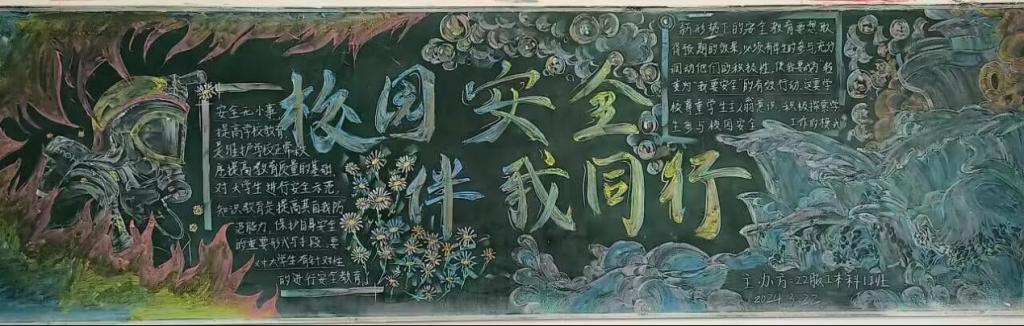 校园安全
伴我同行
安全无小事
提高学校教育
是维护学校正常校
序提高教育质量的基础
对大学生进行安全示范
知识教育是提高其自我防
范能力,保护自身安全
的重要形式手段,要
对大学生有针对性
的进行安全教育
新形势下的安全教育要想取
得预期的效果,必须有学生的参与充分
调动他们的积极性,使我要成为
变为"我要安全"的有效行动,这要学
校尊重学生主人翁意识,积极探索学
生参与校园安全 工作的模式
主办方:22级1本科13班
2024.3.22